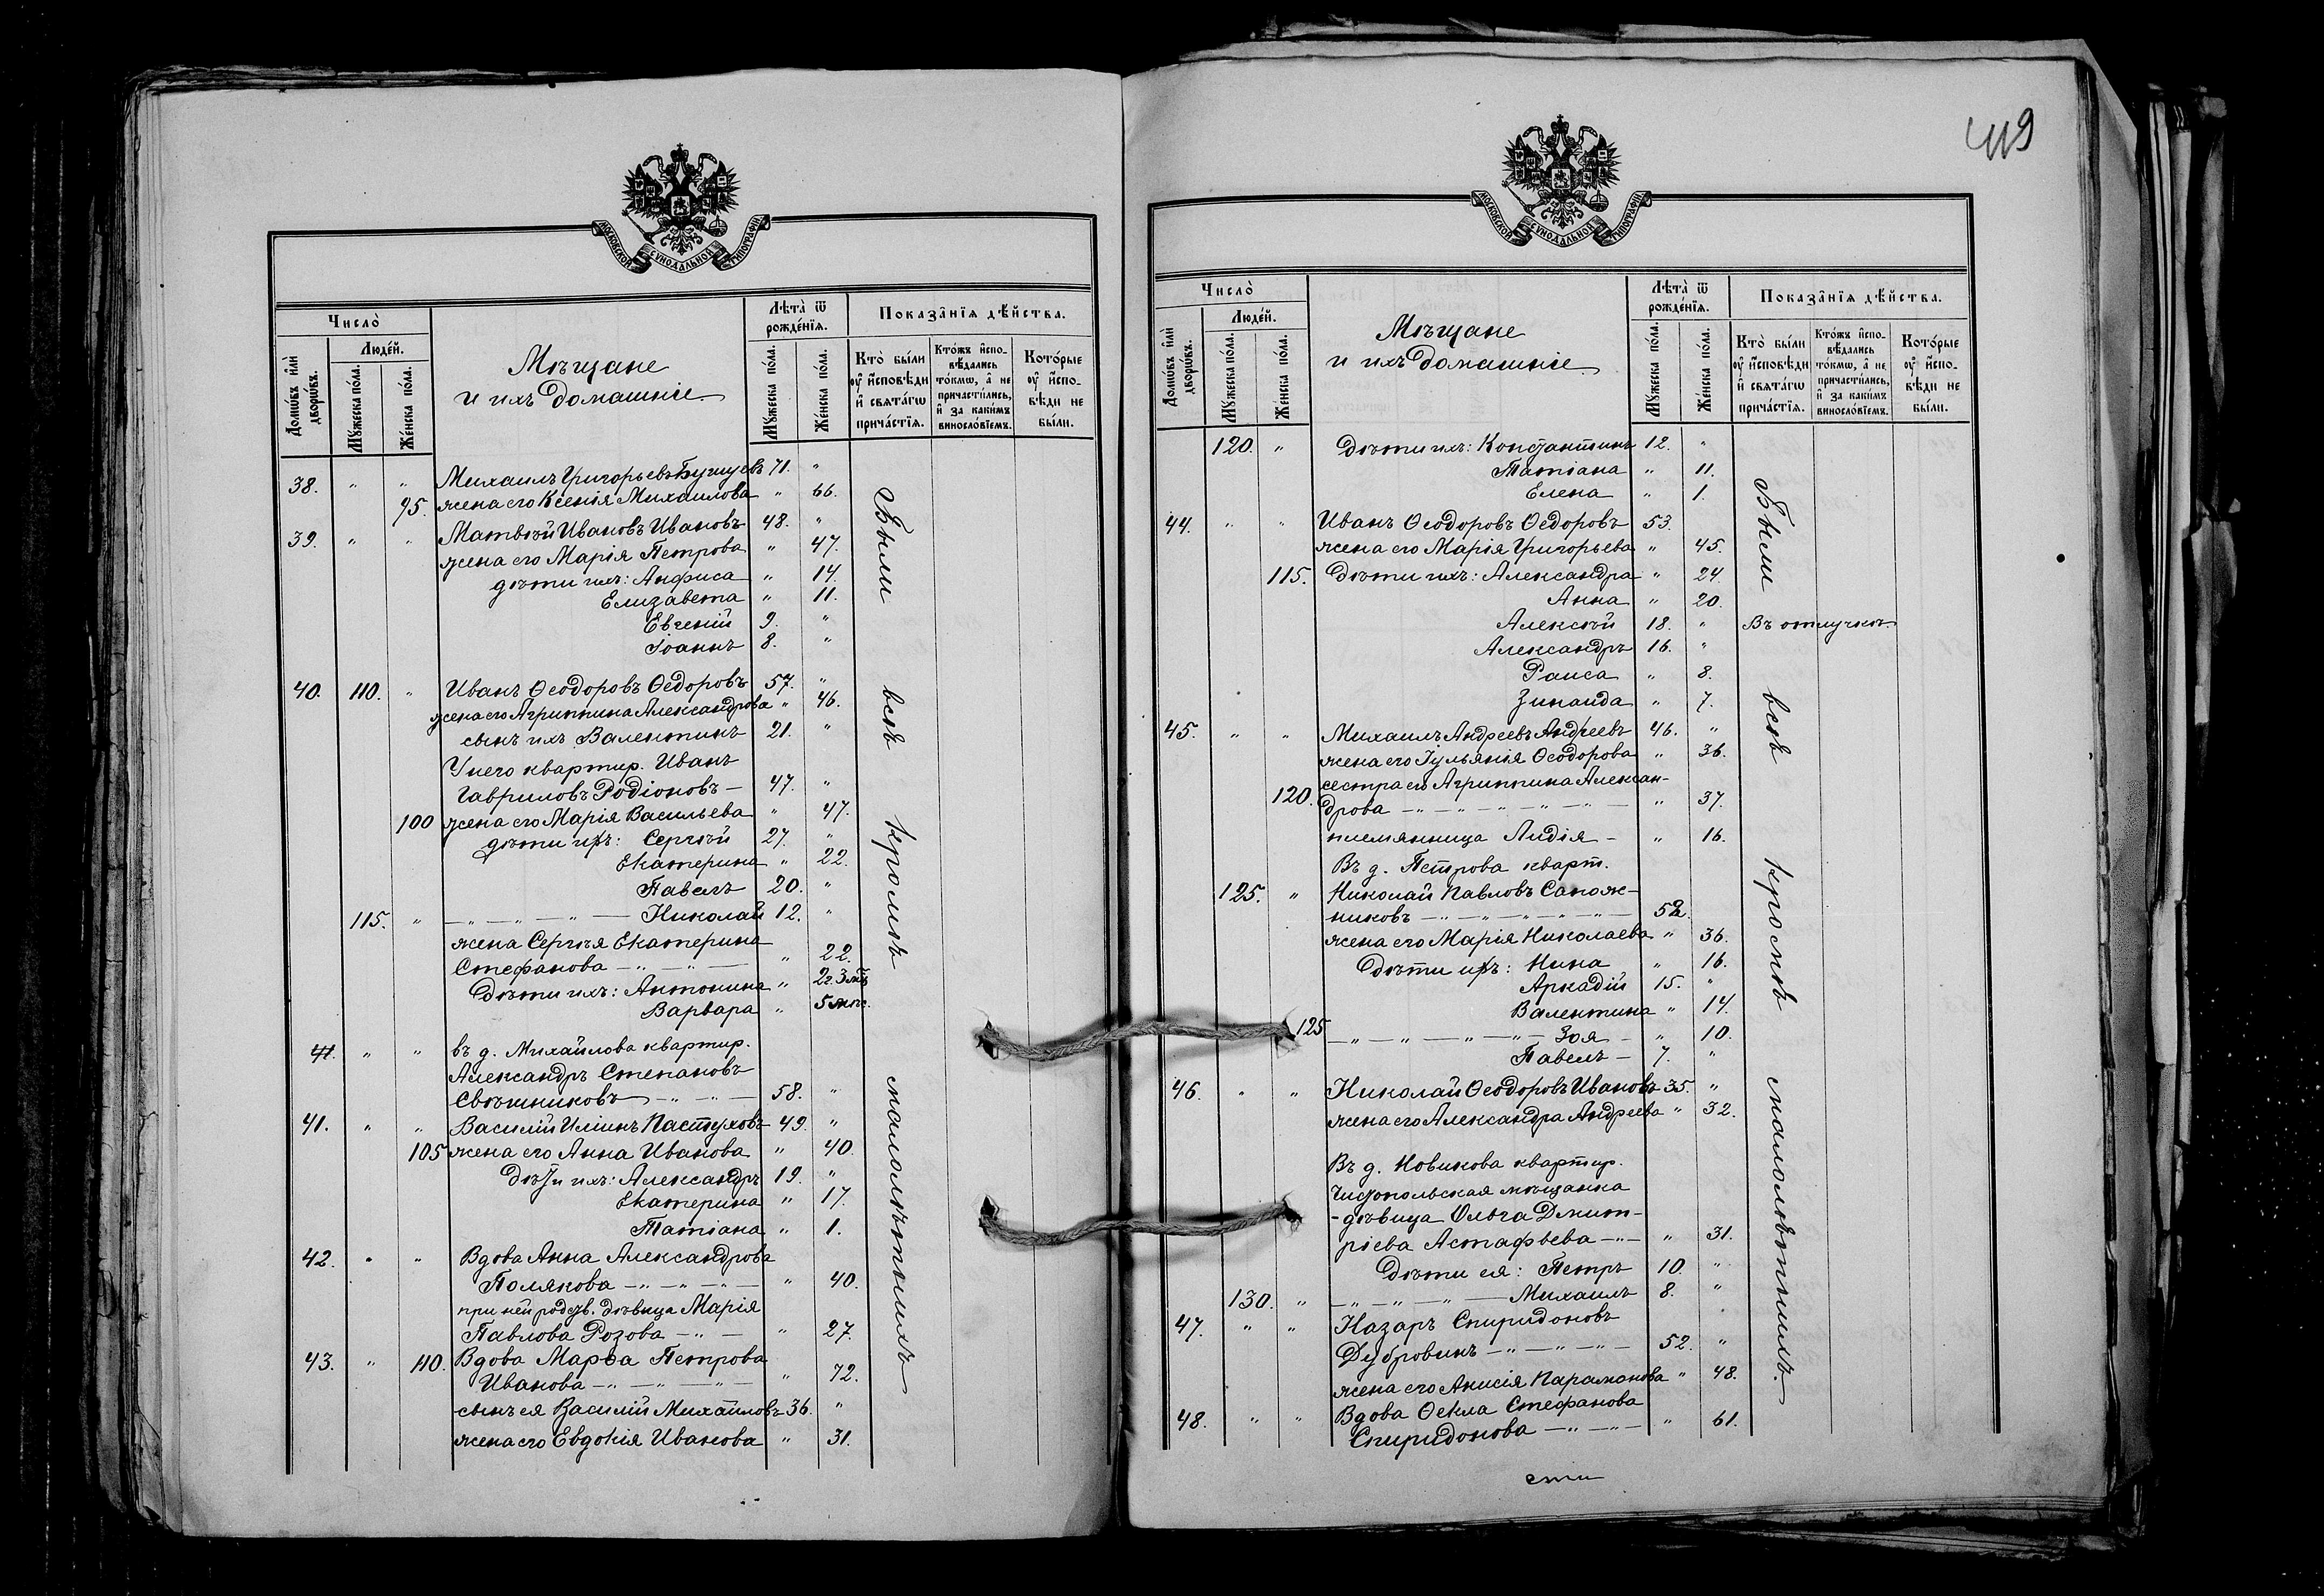 419
МОСКОВСКОЙ СУНОДАЛЬНОЙ ТИПОГРАФІИ
Число̀
Люде́й.
Домѡ́въ и҆лѝ дворѡ́въ.
Мꙋ́жеска по́ла.
Же́нска по́ла.
Мѣщане
и ихъ домашніе
Лѣта̀ ѿ рожде́нїѧ.
Мꙋ́жеска по́ла.
Же́нска по́ла.
Показа̑нїѧ дѣ́йства.
Кто̀ бы́ли оу҆ и҆́сповѣди и҆ свѧта́гѡ прича́стїѧ.
Кто́жъ и҆спо- вѣ́дались то́кмѡ, а҆ не причасти́лись, и҆ за каки́мъ виносло́вїемъ.
Кото́рые оу҆ и҆́спо- вѣди не бы́ли.
38. " " Михаилъ Григорьевъ Бушуевъ 71. "
95. жена его Ксенія Михаилова " 66.
39. " " Матвѣй Ивановъ Ивановъ 48. "
жена его Марія Петрова " 47.
дѣти ихъ: Анфиса " 14.
Елизавета " 11.
Евгеній 9. "
Іоаннъ 8. "
40. 110. " Иванъ Ѳеодоровъ Ѳедоровъ 57. "
жена его Агриппина Александрова " 46.
сынъ ихъ Валентинъ 21. "
У него квартир. Иванъ
Гавриловъ Родіоновъ — 47. "
100 жена его Марія Васильева " 47.
дѣти ихъ: Сергѣй 27. "
Екатерина " 22.
Павелъ 20. "
115. " — " — " — " — Николай 12. "
жена Сергѣя Екатерина
Стефанова — " — " — " 22.
Дѣти ихъ: Антонина " 2г. 3 мѣ
Варвара " 5 мѣс.
41. " " въ д. Михайлова квартир.
Александръ Степановъ
Свѣшниковъ — " — " — 58. "
41. " " Василій Иліинъ Пастуховъ 49. "
105 жена его Анна Иванова " 40.
Дѣти ихъ: Александръ 19. "
Екатерина " 17.
Татіана " 1.
42. " " Вдова Анна Александрова
Полякова — " — " — " — " 40.
при ней родств. дѣвица Марія
Павлова Розова — " — " 27.
43. " 110. Вдова Марѳа Петрова
Иванова — " — " — " — " 72.
сынъ ея Василій Михайловъ 36. "
жена его Евдокія Иванова " 31.
Были всѣ кромѣ малолѣтнихъ
МОСКОВСКОЙ СУНОДАЛЬНОЙ ТИПОГРАФІИ
Число̀
Люде́й.
Домѡ́въ и҆лѝ дворѡ́въ.
Мꙋ́жеска по́ла.
Же́нска по́ла.
Мѣщане
и ихъ домашніе
Лѣта̀ ѿ рожде́нїѧ.
Мꙋ́жеска по́ла.
Же́нска по́ла.
Показа̑нїѧ дѣ́йства.
Кто̀ бы́ли оу҆ и҆́сповѣди и҆ свѧта́гѡ прича́стїѧ.
Кто́жъ и҆спо- вѣ́дались то́кмѡ, а҆ не причасти́лись, и҆ за каки́мъ виносло́вїемъ.
Кото́рые оу҆ и҆́спо- вѣди не бы́ли.
120. " Дѣти ихъ: Константинъ 12. "
Татіана " 11.
Елена " 1.
44. " " Иванъ Ѳеодоровъ Ѳедоровъ 53.
жена его Марія Григорьева " 45.
115. Дѣти ихъ: Александра " 24.
Анна " 20.
Алексѣй 18. " Въ отлучкѣ.
Александръ 16. "
Раиса " 8.
Зинаида " 7.
45. " " Михаилъ Андреевъ Андреевъ 46. "
жена его Іульянія Ѳеодорова " 36.
сестра его Агриппина Алексан-
120. дрова — " — " — " — " — " 37.
племянница Лидія — " 16.
Въ д. Петрова кварт.
125. " Николай Павловъ Сапож-
никовъ — " — " — " — " — 52.
жена его Марія Николаева " 36.
Дѣти ихъ: Нина " 16.
Аркадій 15. "
Валентина " 14.
125 — " — " — " — " — Зоя — " 10.
Павелъ — 7. "
46. " " Николай Ѳеодоровъ Ивановъ 35. "
жена его Александра Андреева " 32.
Въ д. Новикова квартир.
Чистопольская мѣщанка
-дѣвица Ольга Дмит-
ріева Астафьева — " — " 31.
Дѣти ея: Петръ 10. "
130. " — " — " — " — Михаилъ 8. "
47. " " Назаръ Спиридоновъ
Дубровинъ — " — " — " — 52. "
жена его Анисія Парамонова " 48.
48. " " Вдова Ѳекла Стефанова
Спиридонова — " — " — " 61.
Были всѣ кромѣ малолѣтнихъ.
сти